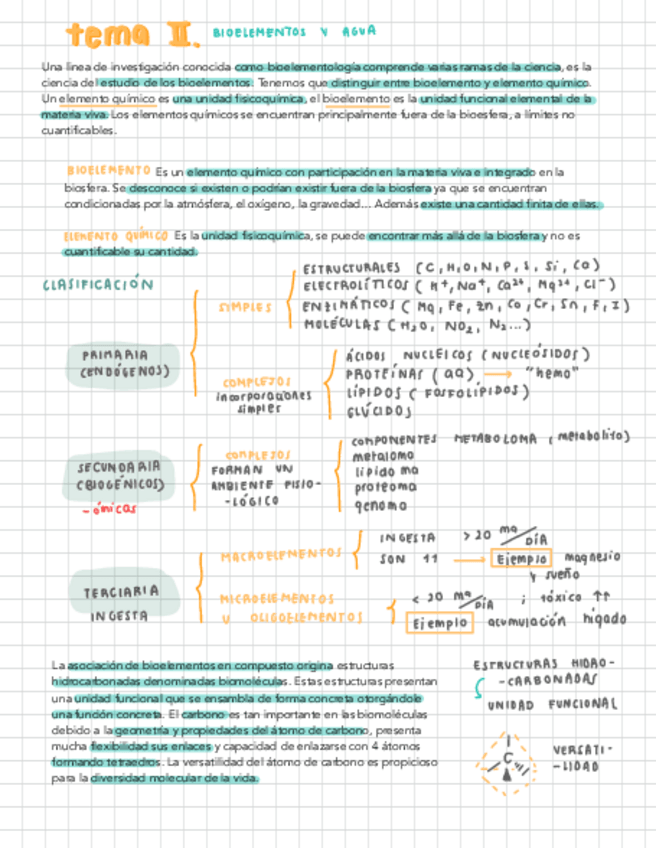 tema II. BIOELEMENTOS Y AGUA
Una línea de investigación conocida como bioelementología comprende varias ramas de la ciencia, es la
ciencia del estudio de los bioelementos. Tenemos que distinguir entre bioelemento y elemento químico.
Un elemento químico es una unidad fisicoquímica, el bioelemento es la unidad funcional elemental de la
materia viva. Los elementos químicos se encuentran principalmente fuera de la bioesfera, a límites no
cuantificables.
BIOELEMENTO Es un elemento químico con participación en la materia viva e integrado en la
biosfera. Se desconoce si existen o podrían existir fuera de la biosfera ya que se encuentran
condicionadas por la atmósfera, el oxígeno, la gravedad... Además existe una cantidad finita de ellas.
ELEMENTO QUÍMICO Es la unidad fisicoquímica, se puede encontrar más allá de la biosfera y no es
cuantificable su cantidad.
CLASIFICACIÓN
PRIMARIA
(ENDÓGENOS)
SIMPLES
ESTRUCTURALES (C, H, O, N, P, S, Si, Ca)
ELECTROLÍTICOS (H+, Na+, Ca2+, Mg2+, Cl-)
ENZIMÁTICOS (Mg, Fe, Zn, Co, Cr, Sn, F, I)
MOLÉCULAS (H2O, NO2, N2...)
COMPLEJOS
incorporaciones
simples
ÁCIDOS NUCLEICOS (NUCLEÓSIDOS)
PROTEÍNAS (aa) → "hemo"
LÍPIDOS (FOSFOLÍPIDOS)
GLÚCIDOS
SECUNDARIA
(BIOGÉNICOS)
-ómicas
COMPLEJOS
FORMAN UN
AMBIENTE FISIO-
-LÓGICO
COMPONENTES METABOLOMA (metabolito)
metaloma
lipidoma
proteoma
genoma
TERCIARIA
INGESTA
MACROELEMENTOS
INGESTA >20 mg/DÍA
SON 11 → Ejemplo magnesio
y sueño
MICROELEMENTOS
U OLIGOELEMENTOS
< 20 mg/DÍA ; tóxico ↑↑
Ejemplo acumulación hígado
La asociación de bioelementos en compuesto origina estructuras
hidrocarbonadas denominadas biomoléculas. Estas estructuras presentan
una unidad funcional que se ensambla de forma concreta otorgándole
una función concreta. El carbono es tan importante en las biomoléculas
debido a la geometría y propiedades del átomo de carbono, presenta
mucha flexibilidad sus enlaces y capacidad de enlazarse con 4 átomos
formando tetraedros. La versatilidad del átomo de carbono es propicioso
para la diversidad molecular de la vida.
ESTRUCTURAS HIDRO-
-CARBONADAS
UNIDAD FUNCIONAL
C
VERSATI-
-LIDAD